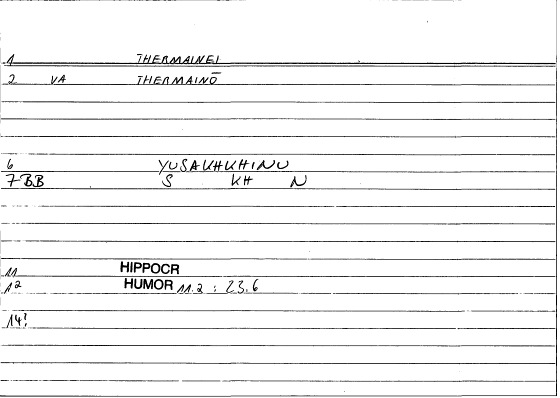 1 THERMAINEI
2 VA THERMAINŌ
6 YUSAKHKHINU
7 BB S KH N
11 HIPPOCR
12 HUMOR 11.2 : 23.6
14?